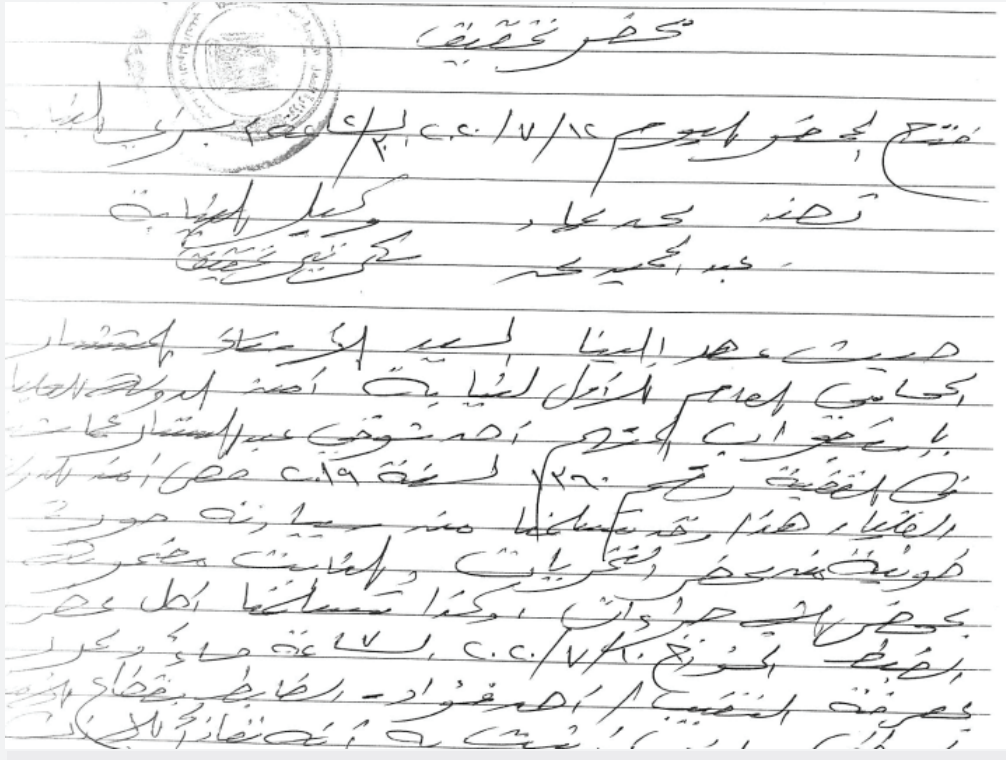 محضر تحقيق
فتح المحضر اليوم ١٢/٧/٢٠٢٠ الساعة بسراي النيابة
نحن محمد عماد وكيل النيابة
عبد الحميد محمد سكرتير تحقيق
حيث عهد إلينا السيد الأستاذ المستشار
المحامي العام الأول لنيابة أمن الدولة العليا
باستجواب المتهم أحمد شوقي عبد الستار
في القضية رقم ١٣٦٠ لسنة ٢٠١٩ حصر أمن الدولة
العليا، هذا وقد تسلمنا من سيادته صورة
ضوئية من محضر التحريات والثابت
بمحضر الإجراءات وكذا تسلمنا أصل محضر
الضبط المؤرخ ١٠/٧/٢٠٢٠ الساعة ٧ مساءً ومحرر
بمعرفة النقيب / أحمد فؤاد - الضابط بقطاع
به أنه نفاذاً